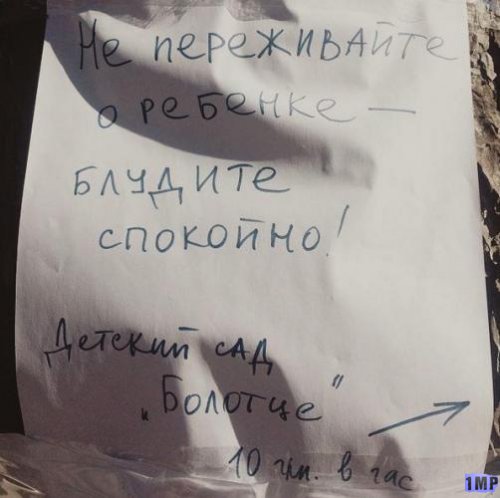 Не переживайте
о ребенке —
блудите
спокойно!
Детский сад
„Болотце"
10 грн. в час
1MP